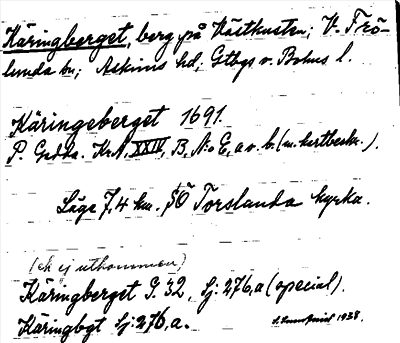 Käringberget, berg på Västkusten; V. Frö-
lunda sn; Askims hd; Gtbgs o. Bohus l.
Käringeberget 1691.
P. Gedda. Kr.A. XXIV, B, N:o E, a o. b. (m. kustbeskr.).
Läge 7,4 km. SÖ Torslanda kyrka.
(ek ej utkommen)
Käringberget G. 32, Sj: 276, a (special).
Käringbgt Sj: 276, a.
1938.